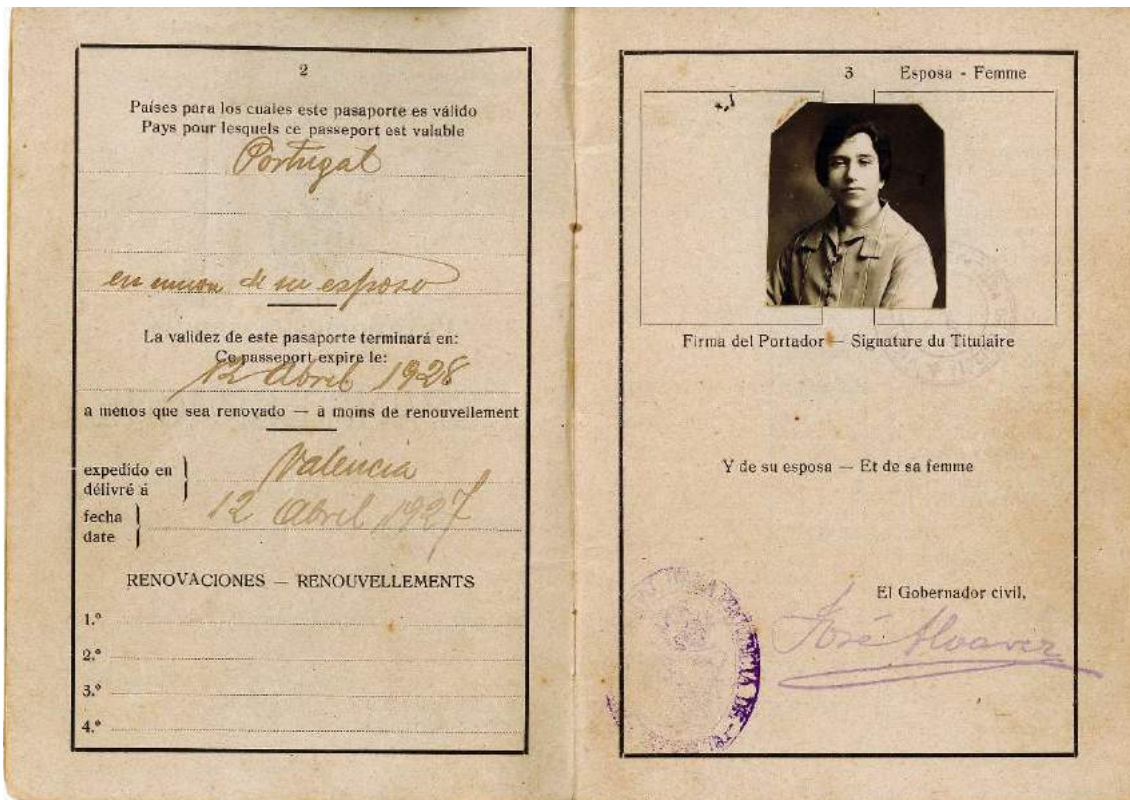 2
Países para los cuales este pasaporte es válido
Pays pour lesquels ce passeport est valable
Portugal
en union de su esposo
La validez de este pasaporte terminará en:
Ce passeport expire le:
12 Abril 1928
a menos que sea renovado — à moins de renouvellement
expedido en
délivré à
Valencia
fecha
date
12 Abril 1927
RENOVACIONES — RENOUVELLEMENTS
1.º
2.º
3.º
4.º
3 Esposa - Femme
Firma del Portador — Signature du Titulaire
Y de su esposa — Et de sa femme
El Gobernador civil,
José Alvarez